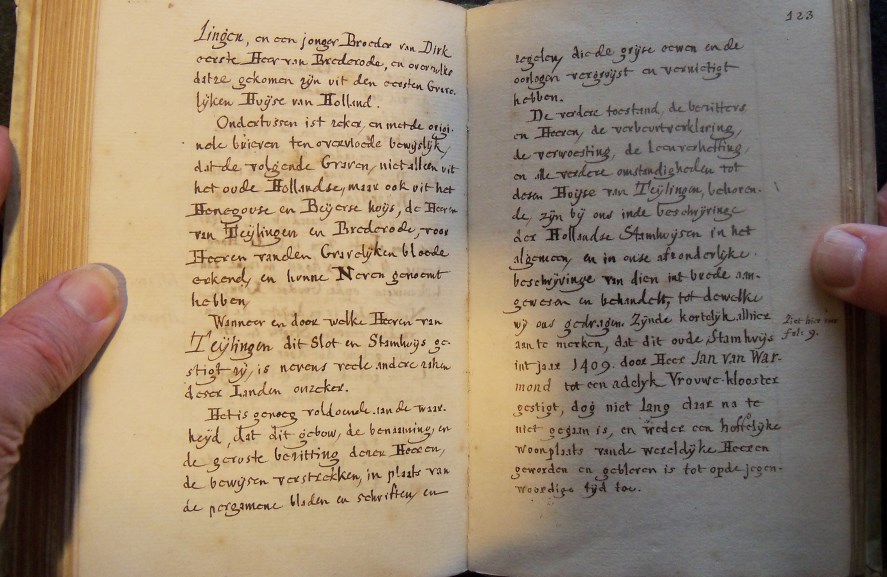 Lingen, en een jonger Broeder van Dirk
eerste Heer van Brederode, en overmits
datze gekomen zijn uit den eersten Grave-
lijken Huijse van Holland.
Ondertussen ist zeker, en met de origi-
nele brieven ten overvloede bewijslijk,
dat de volgende Graven, niet alleen uit
het oude Hollandse, maar ook uit het
Henegouse en Beijerse huijs, de Heeren
van Teijlingen en Brederode, voor
Heeren vanden Gravelijken bloede
erkend, en hunne Neven genoemt
hebben
Wanneer en door welke Heeren van
Teijlingen dit Slot en Stamhuijs ge-
stigt zij, is nevens veele andere zaken
dezer Landen onzeker.
Het is genoeg voldoende aan de waar-
heijd, dat dit gebow, de benaming, en
de geruste bezitting dezer Heeren,
de bewijsen verstrekken, in plaats van
de pergamene bladen en schriften, en
123
zegelen, die de grijse eewen en de
oorlogen vergruijst en vernietigt
hebben.
De verdere toestand, de bezitters
en Heeren, de verbeurtverklering,
de verwoesting, de leenverheffing,
en alle verdere omstandigheden tot
desen Huijse van Teijlingen, behoren-
de, zijn bij ons inde beschrijvinge
der Hollandse Stamhuijsen in het
algemeen, en in onse afzonderlijke
beschrijvinge van dien int brede aan-
gewesen en behandelt, tot dewelke
wij ons gedragen. Zijnde kortelijk alhier
aan te merken, dat dit oude Stamhuijs
int jaar 1409. door Heer Jan van War-
mond tot een adelijk Vrouwe-klooster
gestigt, dog niet lang daar na te
niet gegaan is, en weder een hoffelijke
woonplaats vande wereldijke Heeren
geworden en gebleven is tot op de jegen-
woordige tijd toe.
Ziet hier voor
fol: 9.